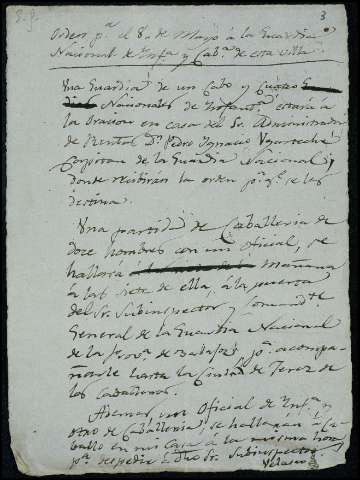 3
Orden pa. el 8 de Mayo á la Guardia
Nacional de Infa. y Caba. de esta villa.
Una Guardia de un Cabo y Cuatro
Nacionales de Infanta. estará á
la Oracion en casa del Sr. Administrador
de Rentas Dn. Pedro Ignacio
de la Guardia Nacional,
donde recibirán la orden pa. qe. se les
destina.
Una partida de Caballeria de
doce hombres con un oficial, se
hallará mañana
á las siete de ella, á la puerta
del Sr. Subinspector y Comandte.
General de la Guardia Nacional
de la Prova. de Badajoz, pa. acompa-
ñarle hasta la Ciudad de Jerez de
los Caballeros.
Ademas, un Oficial de Infa. y
otro de Caballeria, se hallaran á Ca-
ballo en mi Casa á la misma hora
pa. despedir á dho Sr. Subinspector.
Velasco